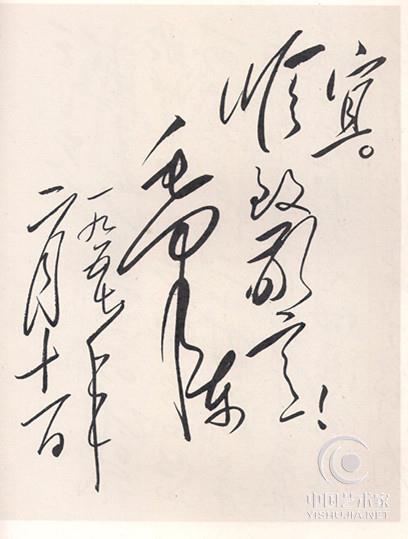 宜。
顺致敬意！
毛泽东
一九五七年
二月十一日
中国艺术家
YISHUJIA.NET